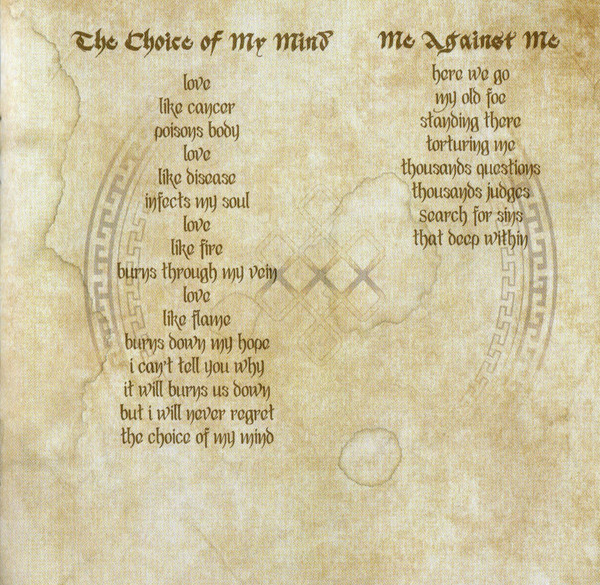 The Choice of My Mind
love
like cancer
poisons body
love
like disease
infects my soul
love
like fire
burns through my vein
love
like flame
burns down my hope
i can't tell you why
it will burns us down
but i will never regret
the choice of my mind
Me Against Me
here we go
my old foe
standing there
torturing me
thousands questions
thousands judges
search for sins
that deep within
XXX